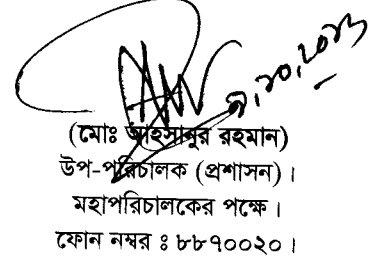 ৯.১০.২০১৩
(মোঃ আহসানুর রহমান)
উপ-পরিচালক (প্রশাসন) ।
মহাপরিচালকের পক্ষে ।
ফোন নম্বর ঃ ৮৮৭০০২০ ।